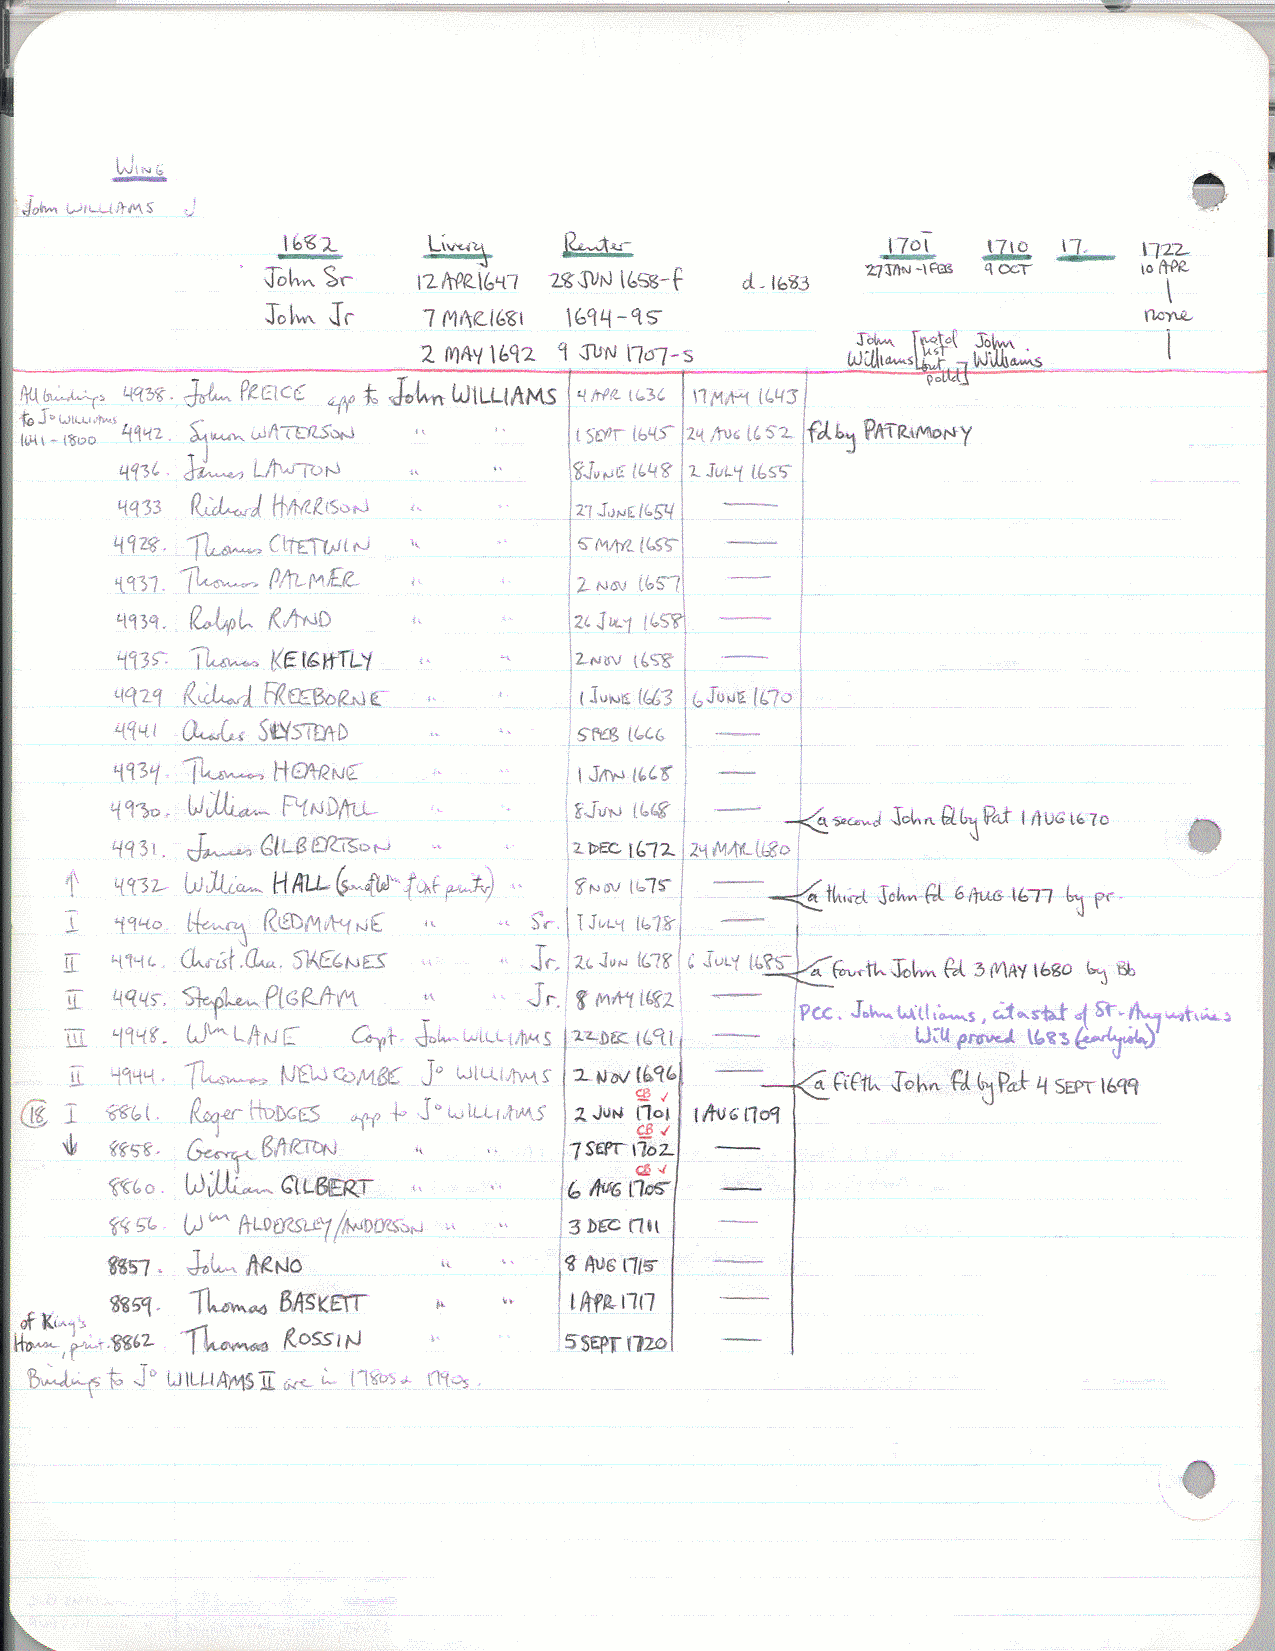 WING
John WILLIAMS
1682 Livery Renter 1701 1710 17. 1722
27 JAN-1 FEB 9 OCT 10 APR
John Sr 12 APR 1647 28 JUN 1658-f d. 1683
John Jr 7 MAR 1681 1694-95 none
2 MAY 1692 9 JUN 1707-s John Williams [not of list but polld] John Williams
All bindings to Jo WILLIAMS 1641-1800
4938. John PREICE app to John WILLIAMS 4 APR 1636 17 MAY 1643
4942. Symon WATERSON " " 1 SEPT 1645 24 AUG 1652 fd by PATRIMONY
4936. James LAWTON " " 8 JUNE 1648 2 JULY 1655
4933 Richard HARRISON " " 27 JUNE 1654 —
4928. Thomas CHETWIN " " 5 MAR 1655 —
4937. Thomas PALMER " " 2 NOV 1657 —
4939. Ralph RAND " " 26 JULY 1658 —
4935. Thomas KEIGHTLY " " 2 NOV 1658 —
4929 Richard FREEBORNE " " 1 JUNE 1663 6 JUNE 1670
4941 Charles SLYSTEAD " " 5 FEB 1666 —
4934. Thomas HEARNE " " 1 JAN 1668 —
4930. William FYNDALL " " 8 JUN 1668 —
a second John fd by Pat 1 AUG 1670
4931. James GILBERTSON " " 2 DEC 1672 24 MAR 1680
↑ 4932 William HALL printer) " 8 NOV 1675 —
a third John fd 6 AUG 1677 by pr.
I 4940. Henry REDMAYNE " " Sr. 1 JULY 1678 —
II 4946. Christ. Cha. SKEGNES " " Jr. 26 JUN 1678 6 JULY 1685
a fourth John fd 3 MAY 1680 by Bb
II 4945. Stephen PIGRAM " " Jr. 8 MAY 1682 —
PCC. John Williams, cit & stat of St-Augustines
Will proved 1683
III 4948. Wm LANE Capt. John WILLIAMS 22 DEC 1691 —
II 4944. Thomas NEWCOMBE Jo WILLIAMS 2 NOV 1696 —
a fifth John fd by Pat 4 SEPT 1699
CB ✓
18 I 8861. Roger HODGES app to Jo WILLIAMS 2 JUN 1701 1 AUG 1709
CB ✓
↓ 8858. George BARTON " " 7 SEPT 1702 —
CB ✓
8860. William GILBERT " " 6 AUG 1705 —
8856. Wm ALDERSLEY/ANDERSON " " 3 DEC 1711 —
8857. John ARNO " " 8 AUG 1715 —
8859. Thomas BASKETT " " 1 APR 1717 —
of King's House, print.
8862 Thomas ROSSIN " " 5 SEPT 1720 —
Bindings to Jo WILLIAMS II are in 1780s & 1790s.